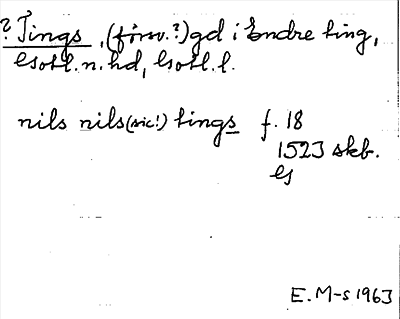 ? Tings, (förv.?) gd i Endre ting,
Gotl.n.hd, Gotl.l.
nils nils (sic!) tings f. 18
1523 skb.
Gs
E. M-s 1963